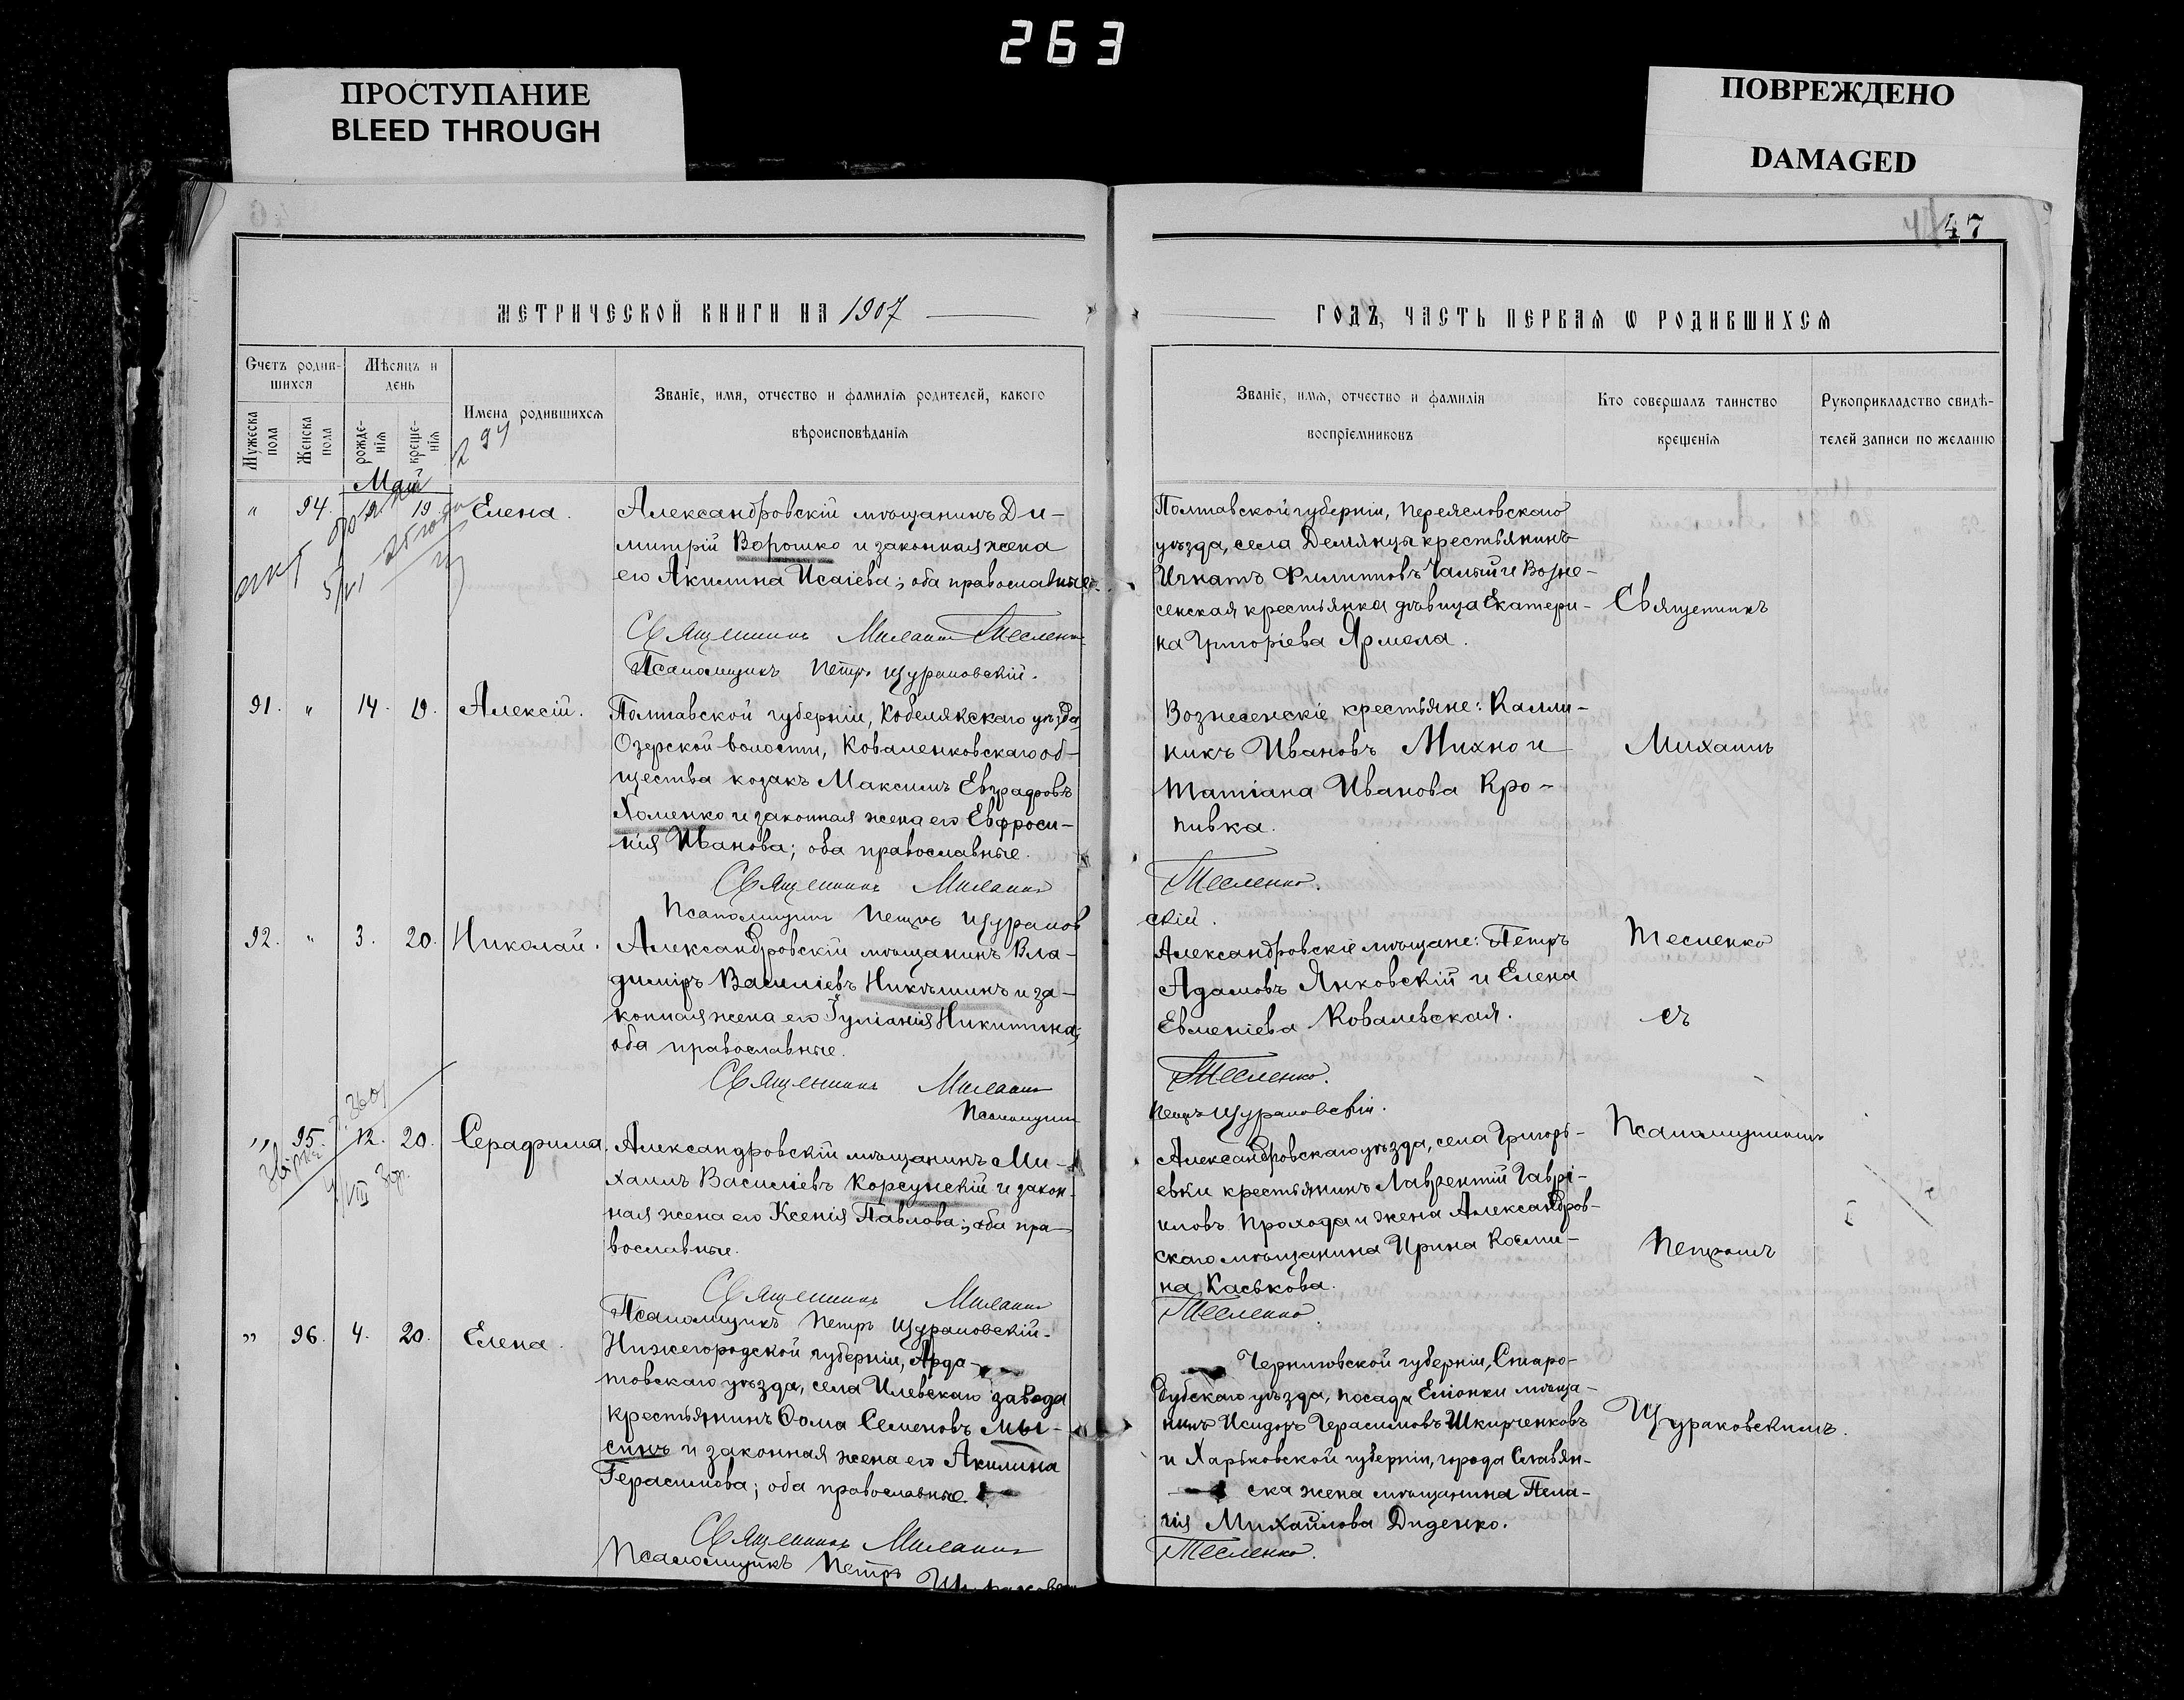 263
ПРОСТУПАНИЕ
BLEED THROUGH
ПОВРЕЖДЕНО
DAMAGED
47
МЕТРИЧЕСКОЙ КНИГИ НА 1907
ГОДЪ, ЧАСТЬ ПЕРВАЯ Ѡ РОДИВШИХСЯ
Счетъ родив-
шихся
Мѣсяцъ и
день
Мужеска
пола
Женска
пола
рожде-
нія
креще-
нія
Имена родившихся
Званіе, имя, отчество и фамилія родителей, какого
вѣроисповѣданія
Званіе, имя, отчество и фамилія
воспріемниковъ
Кто совершалъ таинство
крещенія
Рукоприкладство свидѣ-
телей записи по желанію
Май
" 94. 19. Елена.
Александровскій мѣщанинъ Ди-
митрій Ворошко и законная жена
его Акилина Исаіева; оба православные.
Священникъ Михаилъ Тесленко
Псаломщикъ Петръ Щураковскій.
Полтавской губерніи, Переясловскаго
уѣзда, села Демянцы крестьянинъ
Игнатъ Филипповъ Чалый и Возне-
сенская крестьянка дѣвица Екатери-
на Григоріева Ярмола.
Священникъ
91. " 14. 19. Алексій.
Полтавской губерніи, Кобелякскаго уѣзда,
Озерской волости, Коваленковскаго об-
щества козакъ Максимъ Евграфовъ
Хоменко и законная жена его Евфроси-
нія Иванова; оба православные.
Священникъ Михаилъ
Псаломщикъ Петръ Щураков
Вознесенскіе крестьяне: Калли-
никъ Ивановъ Михно и
Татіана Иванова Кро-
пивка.
Тесленко.
скій.
Михаилъ
92. " 3. 20. Николай.
Александровскій мѣщанинъ Вла-
диміръ Василіевъ Никѣшинъ и за-
конная жена его Іуліанія Никитина;
оба православные.
Священникъ Михаилъ
Псаломщикъ
Александровскіе мѣщане: Петръ
Адамовъ Янковскій и Елена
Евменіева Ковалевская.
Тесленко.
Петръ Щураковскій.
Тесленко
съ
" 95. 12. 20. Серафима.
Александровскій мѣщанинъ Ми-
хаилъ Василіевъ Корсунскій и закон-
ная жена его Ксенія Павлова; оба пра-
вославные.
Священникъ Михаилъ
Псаломщикъ Петръ Щураковскій.
Александровскаго уѣзда, села Григорь-
евки крестьянинъ Лаврентій Гаврі-
иловъ Прохода и жена Александров-
скаго мѣщанина Ирина Косми-
на Каськова.
Тесленко.
Псаломщикомъ
Петромъ
" 96. 4. 20. Елена.
Нижегородской губерніи, Арда-
товскаго уѣзда, села Илевскаго завода
крестьянинъ Ѳома Семеновъ Мы-
синъ и законная жена его Акилина
Герасимова; оба православные.
Священникъ Михаилъ
Псаломщикъ Петръ Щураковскій
Черниговской губерніи, Старо-
дубскаго уѣзда, посада Еліонки мѣща-
нинъ Исидоръ Герасимовъ Шкирченковъ
и Харьковской губерніи, города Славян-
ска жена мѣщанина Пела-
гія Михайлова Диденко.
Тесленко.
Щураковскимъ.